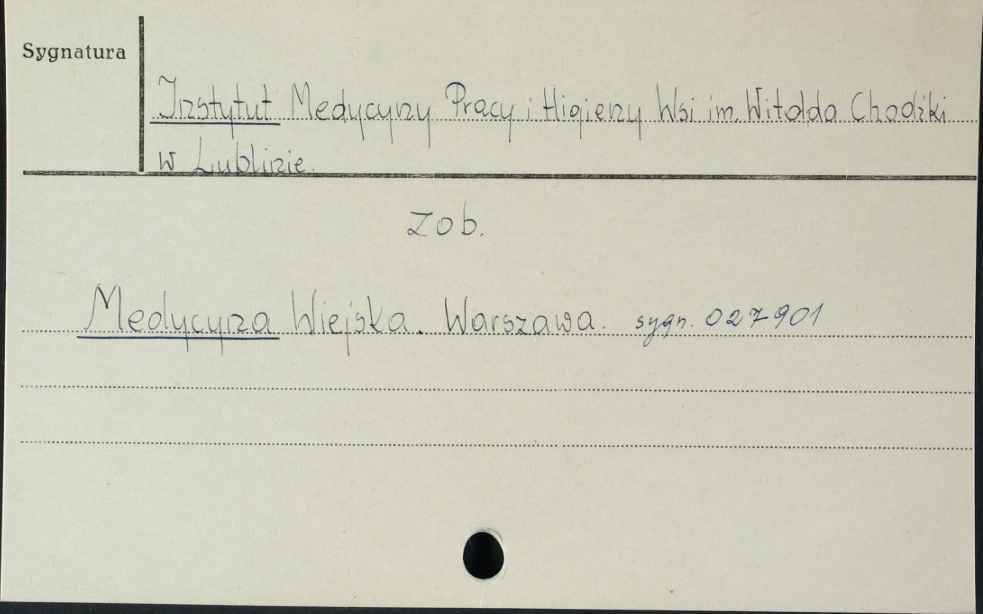 Sygnatura
Instytut Medycyny Pracy i Higieny Wsi im. Witolda Chodźki
w Lublinie.
Zob.
Medycyna Wiejska. Warszawa. sygn. 027901